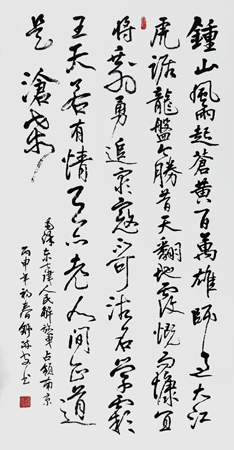 鍾山風雨起蒼黄百萬雄師过大江
虎踞龍盤今勝昔天翻地覆慨而慷宜
将剩勇追窮寇不可沽名學霸
王天若有情天亦老人间正道
是滄桑
毛泽东七律人民解放軍占領南京
丙申年初春书